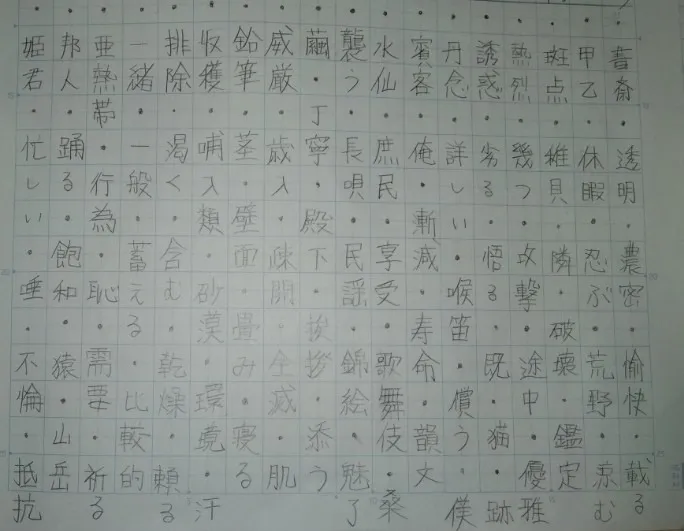 書斎・透明・濃密・愉快・載る
甲乙・休暇・忍ぶ・荒野・涼む
斑点・稚貝・隣・破壊・鑑定
熱烈・幾つ・攻撃・途中・優雅
誘惑・劣る・悟る・既・猫・跡
丹念・詳しい・喉笛・償う・僕
賓客・俺・漸減・寿命・韻文
水仙・庶民・享受・歌舞伎・桑
襲う・長唄・民謡・錦絵・魅了
繭・丁寧・殿下・挨拶・添う
威厳・歳入・疎開・全滅・肌
鉛筆・茎・壁面・畳み・寝る
収獲・哺入類・砂漠・環境・汗
排除・渇く・含む・乾燥・頼る
一緒・一般・蓄える・比較的
亜熱帯・行為・恥・需要・祈る
邦人・踊る・飽和・猿・山岳
姫君・忙しい・唾・不倫・抵抗